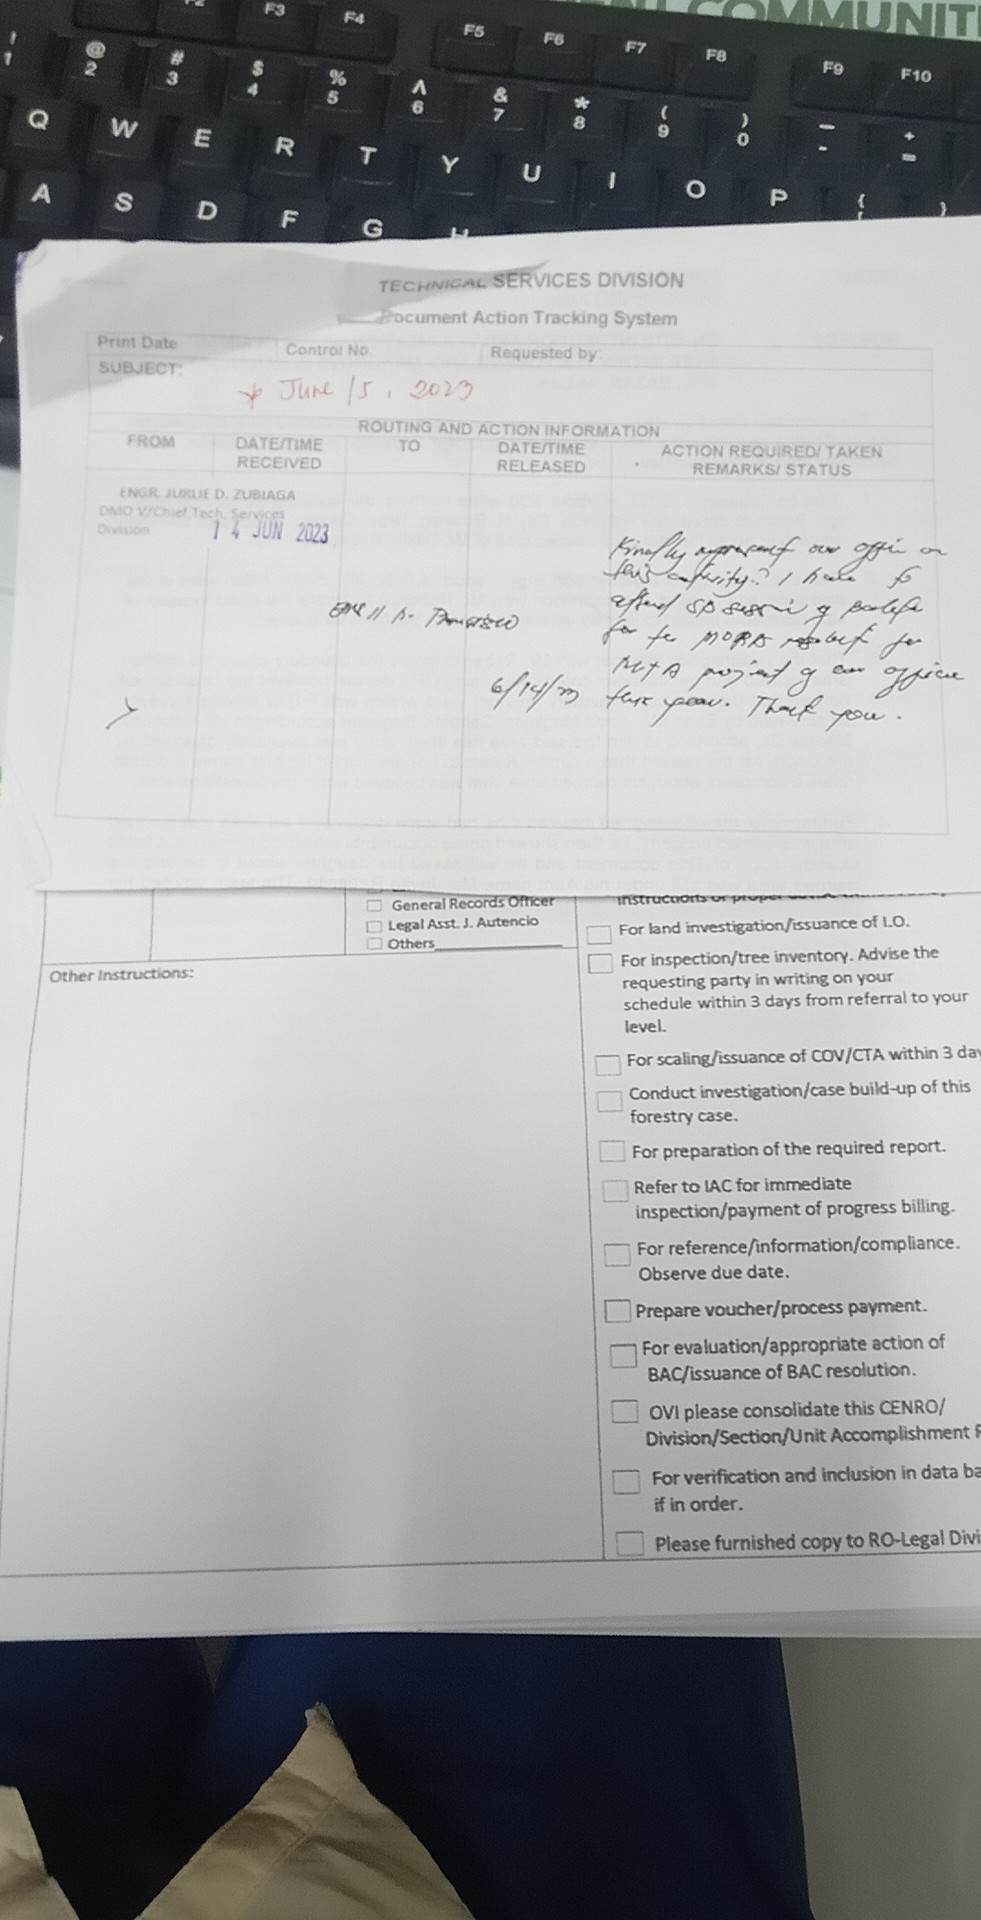 COMMUNIT
F3 F4 F5 F6 F7 F8 F9 F10
! 1 @ 2 # 3 $ 4 % 5 ^ 6 & 7 * 8 ( 9 ) 0 _ - + =
Q W E R T Y U I O P { }
A S D F G H
TECHNICAL SERVICES DIVISION
Document Action Tracking System
Print Date Control No. Requested by:
SUBJECT:
* June 15, 2023
ROUTING AND ACTION INFORMATION
FROM DATE/TIME RECEIVED TO DATE/TIME RELEASED ACTION REQUIRED/ TAKEN REMARKS/ STATUS
ENGR. JURLIE D. ZUBIAGA
DMO V/Chief, Tech. Services
Division
14 JUN 2023
Kindly represent our office on
this activity? I have to
attend SP session of
for the MORA for
project of our office
6/14/23
this year. Thank you.
General Records Officer
Legal Asst. J. Autencio
Others
instructions or proper
For land investigation/issuance of I.O.
For inspection/tree inventory. Advise the
requesting party in writing on your
schedule within 3 days from referral to your
level.
Other Instructions:
For scaling/issuance of COV/CTA within 3 day
Conduct investigation/case build-up of this
forestry case.
For preparation of the required report.
Refer to IAC for immediate
inspection/payment of progress billing.
For reference/information/compliance.
Observe due date.
Prepare voucher/process payment.
For evaluation/appropriate action of
BAC/issuance of BAC resolution.
OVI please consolidate this CENRO/
Division/Section/Unit Accomplishment R
For verification and inclusion in data ba
if in order.
Please furnished copy to RO-Legal Divi